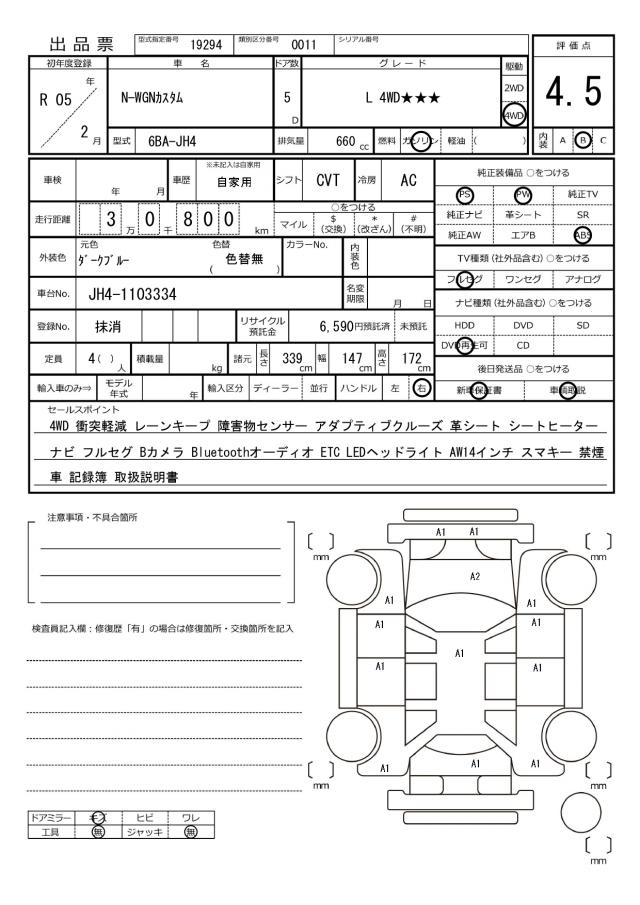 出品票 型式指定番号 19294 類別区分番号 0011 シリアル番号
評価点
4.5
初年度登録 車名 ドア数 グレード 駆動
R 05 年 2 月 N-WGNカスタム 5 D L 4WD★★★ 2WD 4WD
型式 6BA-JH4 排気量 660 cc 燃料 ガソリン 軽油 ( ) 内装 A B C
車検 年 月 車歴 ※未記入は自家用 自家用 シフト CVT 冷房 AC
走行距離 3 万 0 千 8 0 0 km ○をつける
マイル $(交換) *(改ざん) #(不明)
外装色 元色 ダークブルー 色替 ( 色替無 ) カラーNo. 内装色
車台No. JH4-1103334 名変期限 月 日
登録No. 抹消 リサイクル預託金 6,590円預託済 未預託
定員 4( ) 人 積載量 kg 諸元 長さ 339 cm 幅 147 cm 高さ 172 cm
輸入車のみ⇒ モデル年式 年 輸入区分 ディーラー 並行 ハンドル 左 右
純正装備品 ○をつける
PS PW 純正TV
純正ナビ 革シート SR
純正AW エアB ABS
TV種類(社外品含む) ○をつける
フルセグ ワンセグ アナログ
ナビ種類(社外品含む) ○をつける
HDD DVD SD
DVD再生可 CD
後日発送品 ○をつける
新車保証書 車輌取説
セールスポイント
4WD 衝突軽減 レーンキープ 障害物センサー アダプティブクルーズ 革シート シートヒーター
ナビ フルセグ Bカメラ Bluetoothオーディオ ETC LEDヘッドライト AW14インチ スマキー 禁煙
車 記録簿 取扱説明書
注意事項・不具合箇所
検査員記入欄：修復歴「有」の場合は修復箇所・交換箇所を記入
ドアミラー キズ ヒビ ワレ
工具 無 ジャッキ 無
A1 A1
mm mm
A2
A1 A1
A1 A1
A1
A1 A1
A1 A1 A1
mm mm
mm